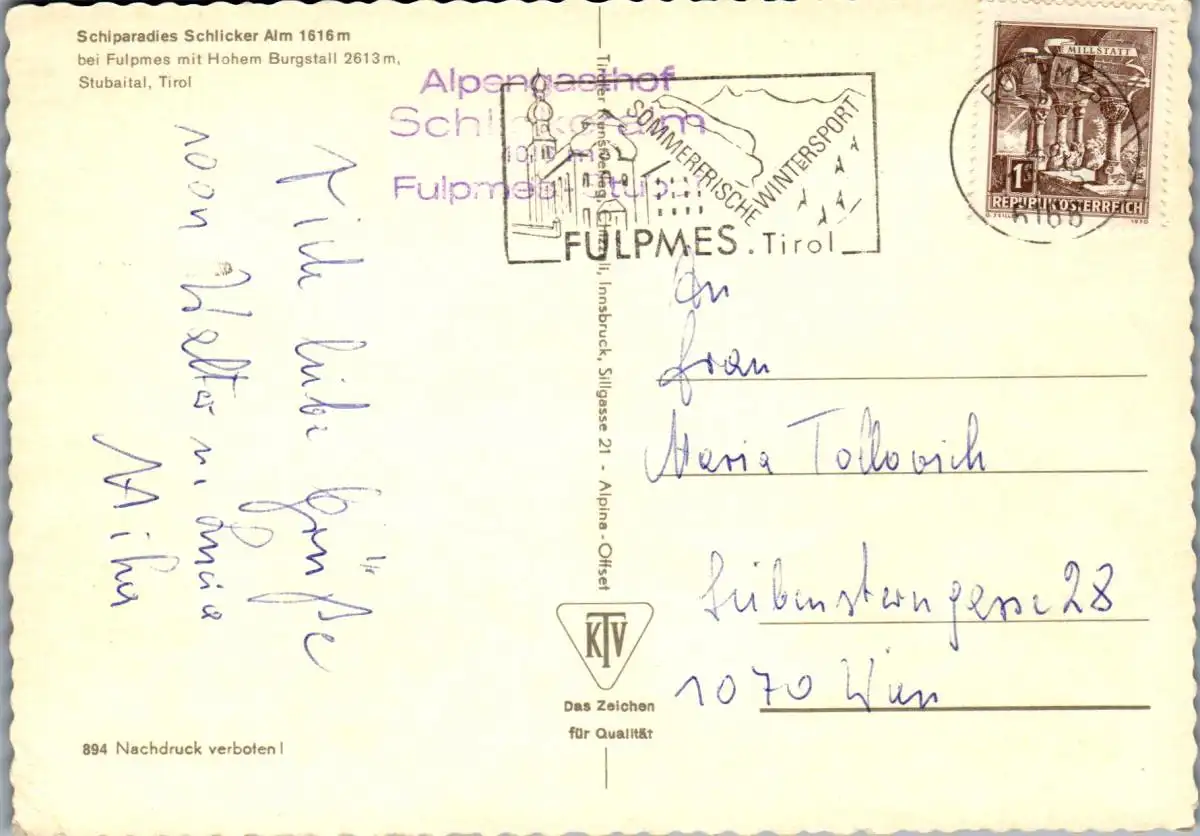 Schiparadies Schlicker Alm 1616 m
bei Fulpmes mit Hohem Burgstall 2613 m,
Stubaital, Tirol
Alpengasthof
Fulpmes
SOMMERFRISCHE
WINTERSPORT
FULPMES. Tirol
MILLSTATT
1S
REPUBLIK ÖSTERREICH
FULPMES
6166
liebe Grüße
von Walter u.
An
Frau
Maria Tollovich
Siebensterngasse 28
1070 Wien
Innsbruck, Sillgasse 21 - Alpina-Offset
KTV
Das Zeichen
für Qualität
894 Nachdruck verboten!